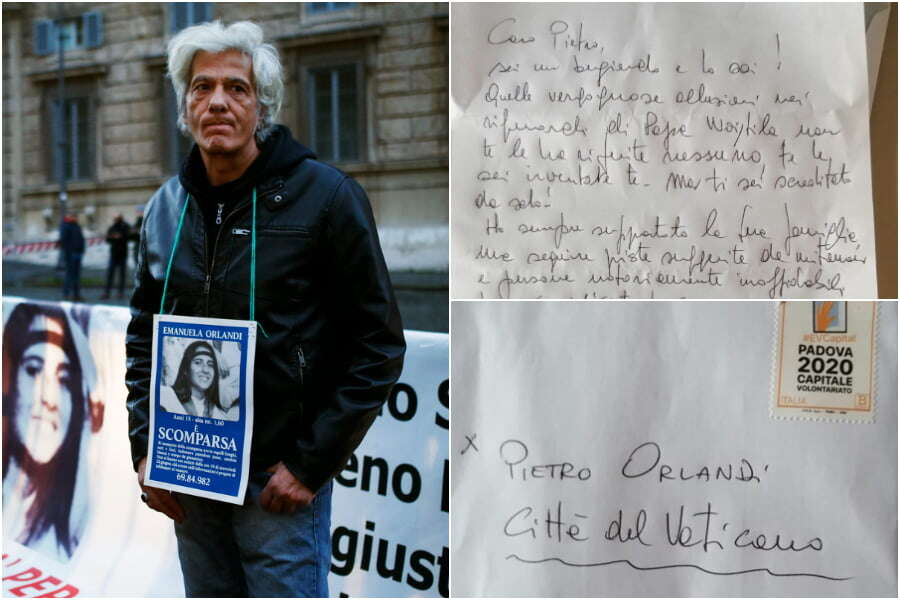 EMANUELA ORLANDI
Anni 15 - alta mt. 1,60
È
SCOMPARSA
69.84.982
giust
Caro Pietro,
sei un bugiardo e lo sai !
Quelle vergognose allusioni nei
riguardi di Papa Woitila non
te le ha riferite nessuno, te le
sei inventate te. Ma ti sei screditato
da solo!
Ho sempre supportato la tua famiglia
ma seguire piste suggerite da mitomani
e persone notoriamente inaffidabili
#EVCapital
PADOVA
2020
CAPITALE
VOLONTARIATO
ITALIA B
x PIETRO ORLANDI
Città del Vaticano